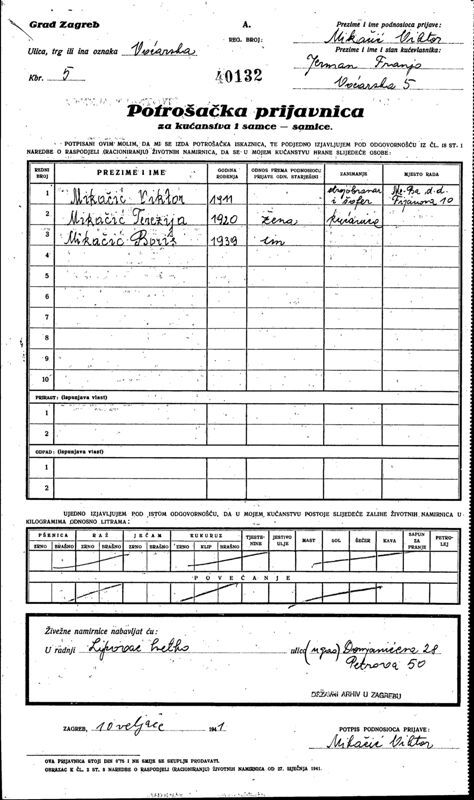 Grad Zagreb
Ulica, trg ili ina oznaka Voćarska
Kbr. 5
A.
REG. BROJ:
40132
Prezime i ime podnosioca prijave:
Mikačić Viktor
Prezime i ime i stan kućevlasnika:
Jerman Franjo
Voćarska 5
Potrošačka prijavnica
za kućanstva i samce — samice.
POTPISANI OVIM MOLIM, DA MI SE IZDA POTROŠAČKA ISKAZNICA, TE PODJEDNO IZJAVLJUJEM POD ODGOVORNOŠĆU IZ ČL. 18 ST. 1
NAREDBE O RASPODJELI (RACIONIRANJU) ŽIVOTNIH NAMIRNICA, DA SE U MOJEM KUĆANSTVU HRANE SLIJEDEĆE OSOBE:
REDNI BROJ PREZIME I IME GODINA ROĐENJA ODNOS PREMA PODNOSIOCU PRIJAVE ODN. STARJEŠINI ZANIMANJE MJESTO RADA
1 Mikačić Viktor 1911 i šofer
2 Mikačić Terezija 1920 žena kućanica
3 Mikačić Boris 1939 sin
4
5
6
7
8
9
10
PRIRAST: (Ispunjava vlast)
1
2
ODPAD: (Ispunjava vlast)
1
2
UJEDNO IZJAVLJUJEM POD ISTOM ODGOVORNOŠĆU, DA U MOJEM KUĆANSTVU POSTOJE SLIJEDEĆE ZALIHE ŽIVOTNIH NAMIRNICA U
KILOGRAMIMA ODNOSNO LITRAMA:
PŠENICA RAŽ JEČAM KUKURUZ TJESTENINE JESTIVO ULJE MAST SOL ŠEĆER KAVA SAPUN ZA PRANJE PETROLEJ
ZRNO BRAŠNO ZRNO BRAŠNO ZRNO BRAŠNO ZRNO KLIP BRAŠNO
POVEĆANJE
Živežne namirnice nabavljat ću:
U radnji Lipovac ulica Domjanićeva 28
Petrova 50
DRŽAVNI ARHIV U ZAGREBU
ZAGREB, 10 veljače 1941
POTPIS PODNOSIOCA PRIJAVE:
Mikačić Viktor
OVA PRIJAVNICA STOJI DIN 0'75 I NE SMIJE SE SKUPLJE PRODAVATI.
OBRAZAC K ČL. 2 ST. 3 NAREDBE O RASPODJELI (RACIONIRANJU) ŽIVOTNIH NAMIRNICA OD 27. SIJEČNJA 1941.